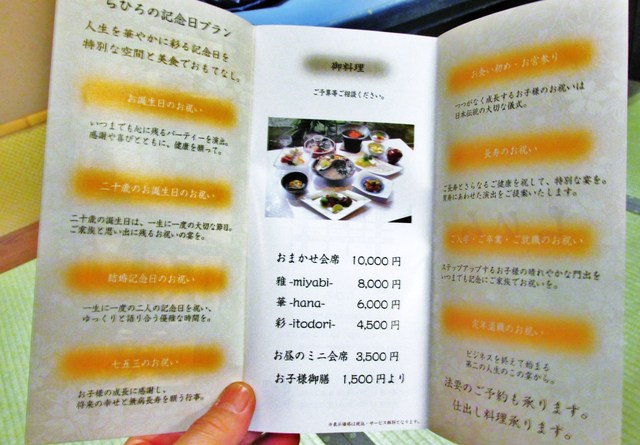 らひろの記念日プラン
人生を華やかに彩る記念日を
特別な空間と美食でおもてなし。
お誕生日のお祝い
いつまでも心に残るパーティーを演出。
感謝や喜びとともに、健康を願って。
二十歳のお誕生日のお祝い
二十歳の誕生日は、一生に一度の大切な節目。
ご家族と思い出に残るお祝いの宴を。
結婚記念日のお祝い
一生に一度の二人の記念日を祝い、
ゆっくりと語り合う優雅な時間を。
七五三のお祝い
お子様の成長に感謝し、
将来の幸せと無病長寿を願う行事。
御料理
ご予算等ご相談ください。
おまかせ会席 10,000円
雅-miyabi- 8,000円
華-hana- 6,000円
彩-itodori- 4,500円
お昼のミニ会席 3,500円
お子様御膳 1,500円より
※表示価格は税込・サービス料別となります。
お食い初め・お宮参り
つつがなく成長するお子様のお祝いは
日本伝統の大切な儀式。
長寿のお祝い
ご長寿とさらなるご健康を祝して、特別な宴を。
賀寿にあわせた演出をご提案いたします。
ご入学・ご卒業・ご就職のお祝い
ステップアップするお子様の晴れやかな門出を
いつまでも記念にご家族でお祝いを。
定年退職のお祝い
ビジネスを終えて始まる
第二の人生のこの宴から。
法要のご予約も承ります。
仕出し料理承ります。